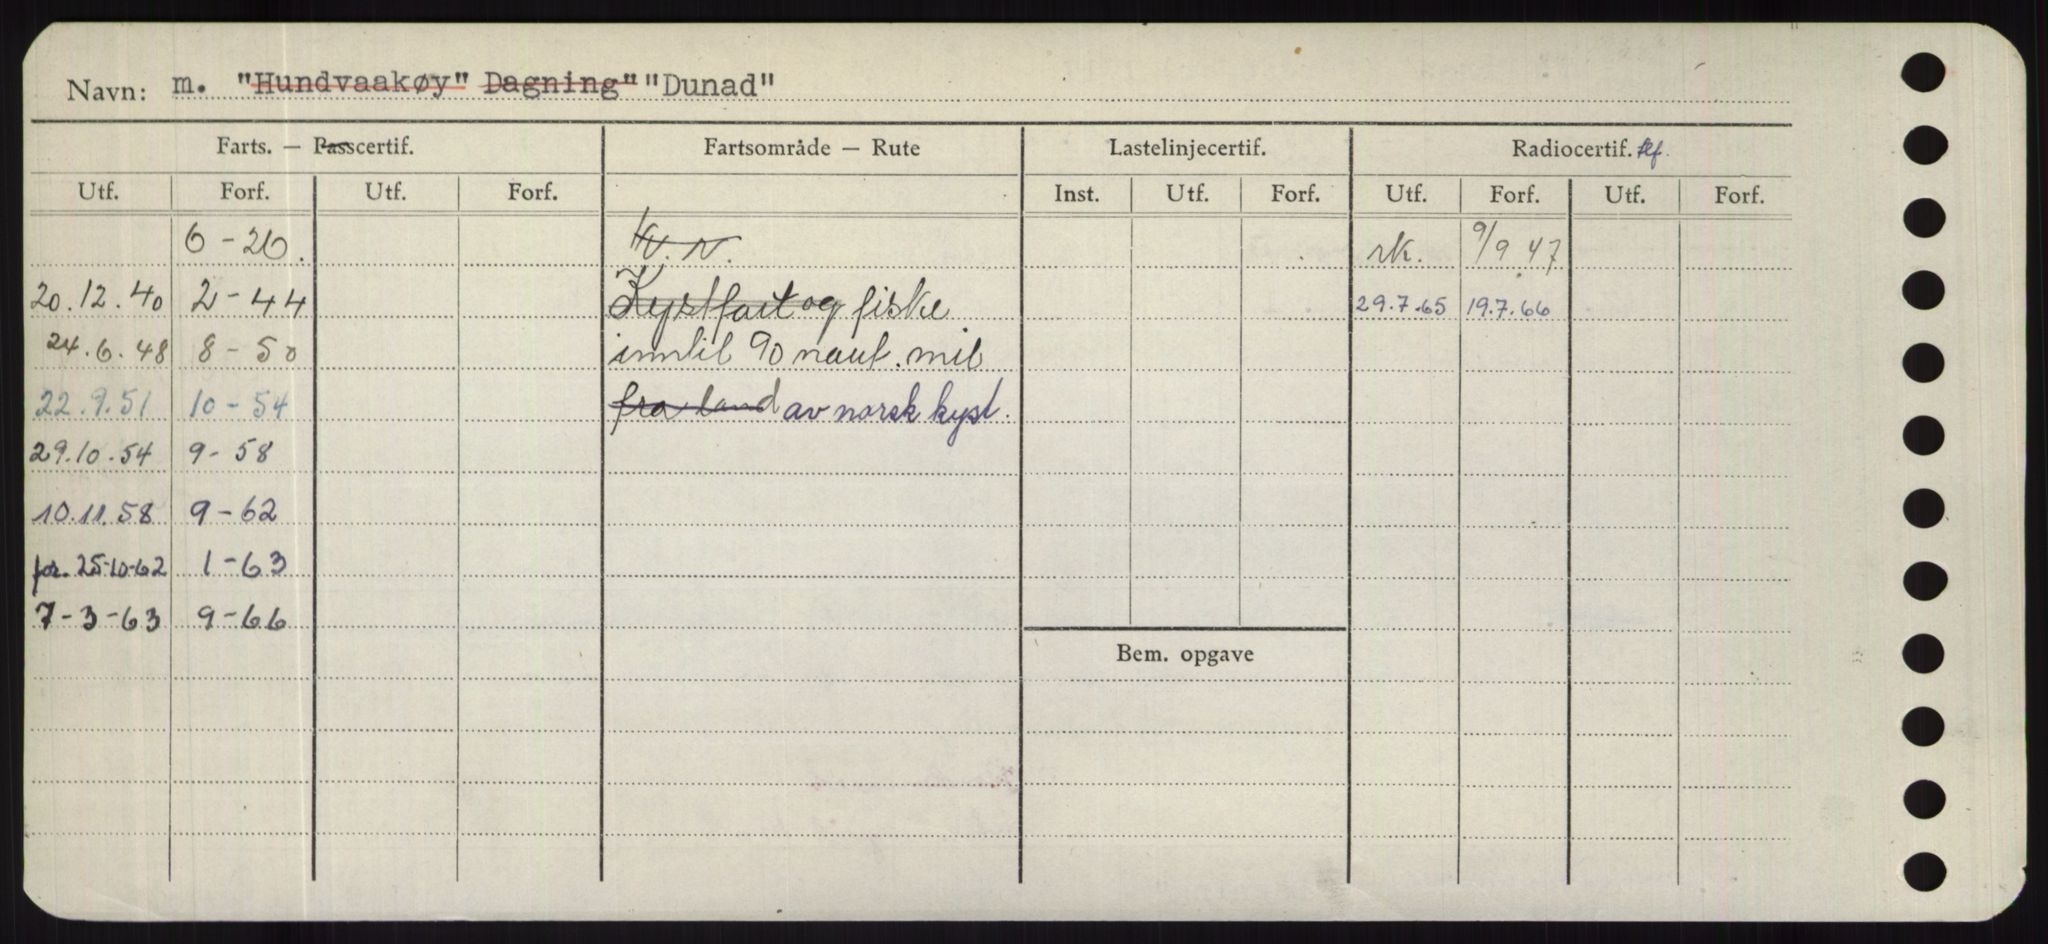 Navn: m. "Hundvaakøy" Dagning" "Dunad"
Farts. — Passcertif. Fartsområde — Rute Lastelinjecertif. Radiocertif. tlf.
Utf. Forf. Utf. Forf. Inst. Utf. Forf. Utf. Forf. Utf. Forf.
6 - 26. K. N. rk. 9/9.47
20.12.40 2 - 44 Kystfart og fiske 29.7.65 19.7.66
24.6.48 8 - 50 inntil 90 naut. mil
22.9.51 10 - 54 fra land av norsk kyst.
29.10.54 9 - 58
10.11.58 9 - 62
for. 25-10-62 1 - 63
7 - 3 - 63 9 - 66
Bem. opgave